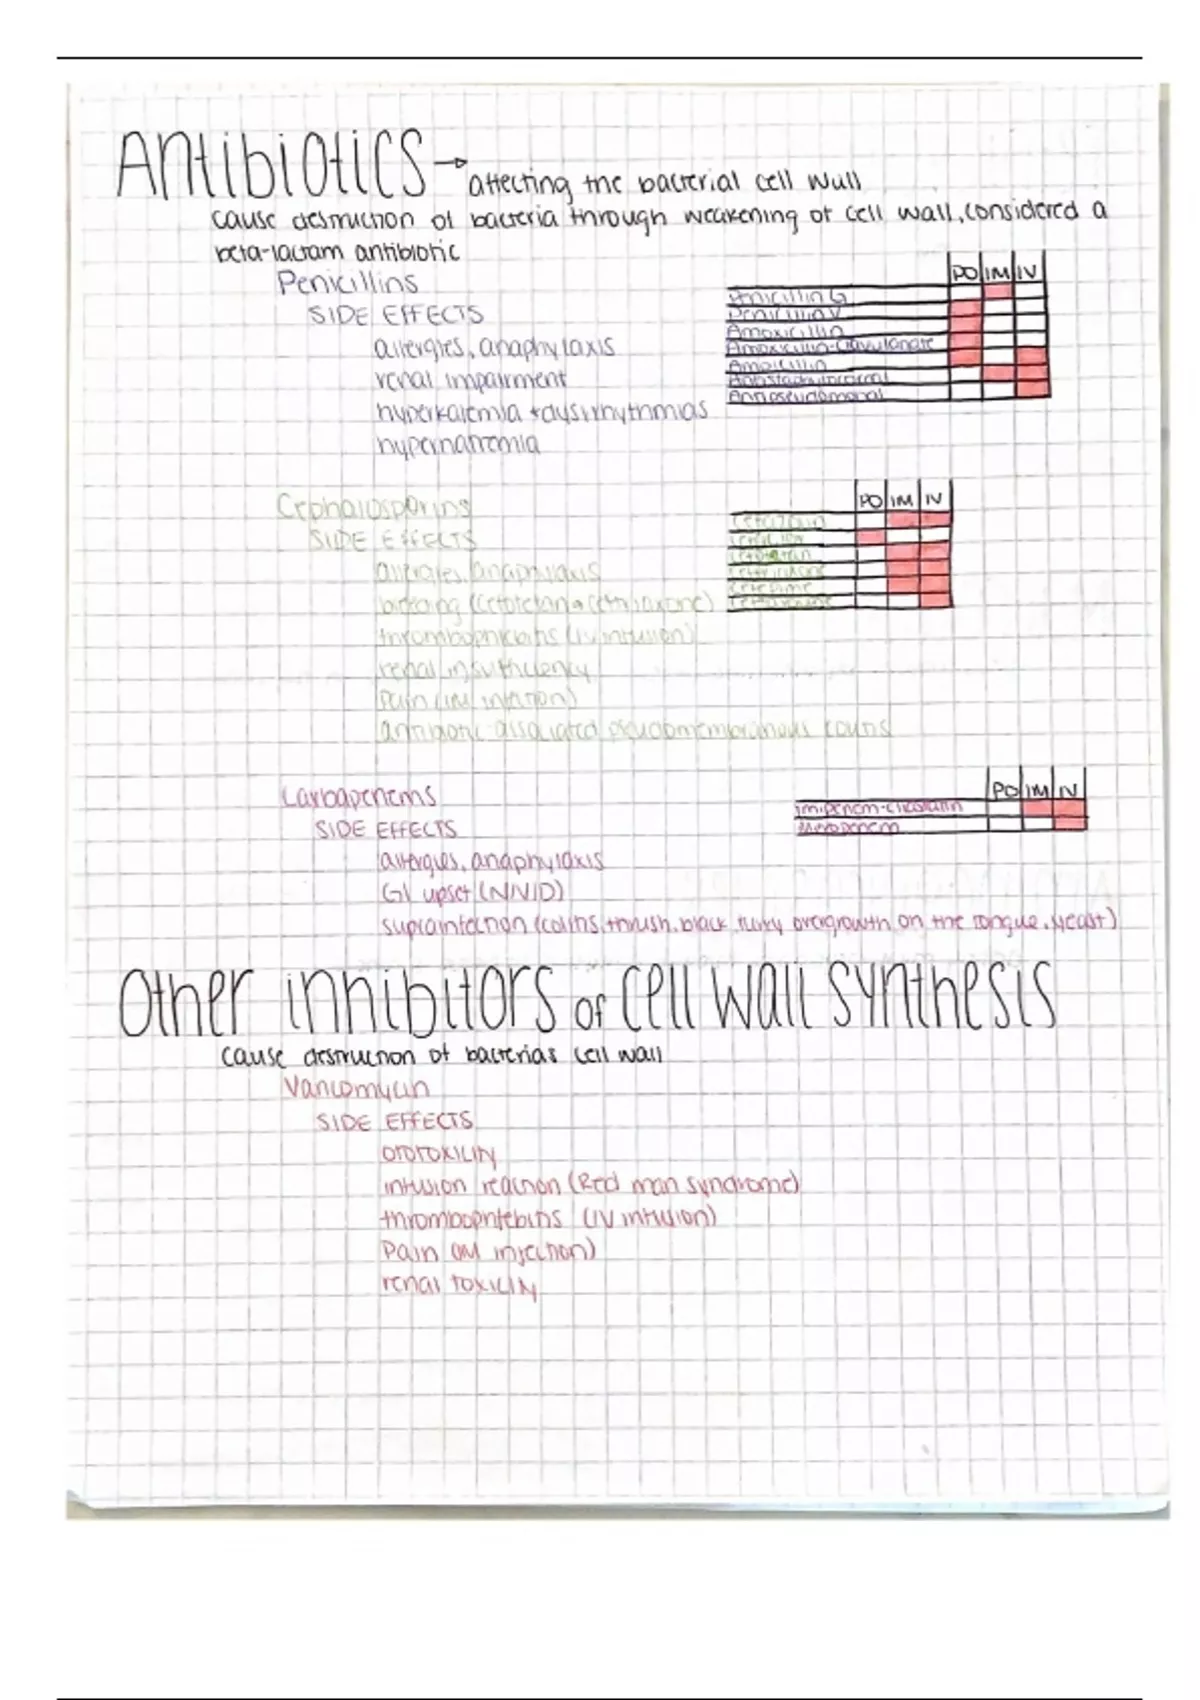 Antibiotics → affecting the bacterial cell wall
cause destruction of bacteria through weakening of cell wall, considered a
beta-lactam antibiotic
Penicillins
SIDE EFFECTS
allergies, anaphylaxis
renal impairment
hyperkalemia + dysrhythmias
hypernatremia
PO IM IV
Penicillin G
Penicillin V
Amoxicillin
Amoxicillin-Clavulanate
Ampicillin
Antipseudomonal
Cephalosporins
SIDE EFFECTS
allergies, anaphylaxis
bleeding (Cefotetan + Ceftriaxone)
thrombophlebitis (IV infusion)
renal insufficiency
Pain (IM injection)
antibiotic-associated pseudomembranous colitis
PO IM IV
Cefotetan
Ceftriaxone
Cefepime
Carbapenems
SIDE EFFECTS
allergies, anaphylaxis
GI upset (N/V/D)
suprainfection (colitis, thrush, black furry overgrowth on the tongue, yeast)
PO IM IV
Imipenem-cilastatin
Meropenem
Other inhibitors of cell wall synthesis
cause destruction of bacterias cell wall
Vancomycin
SIDE EFFECTS
ototoxicity
infusion reaction (Red man syndrome)
thrombophlebitis (IV infusion)
Pain (IM injection)
renal toxicity